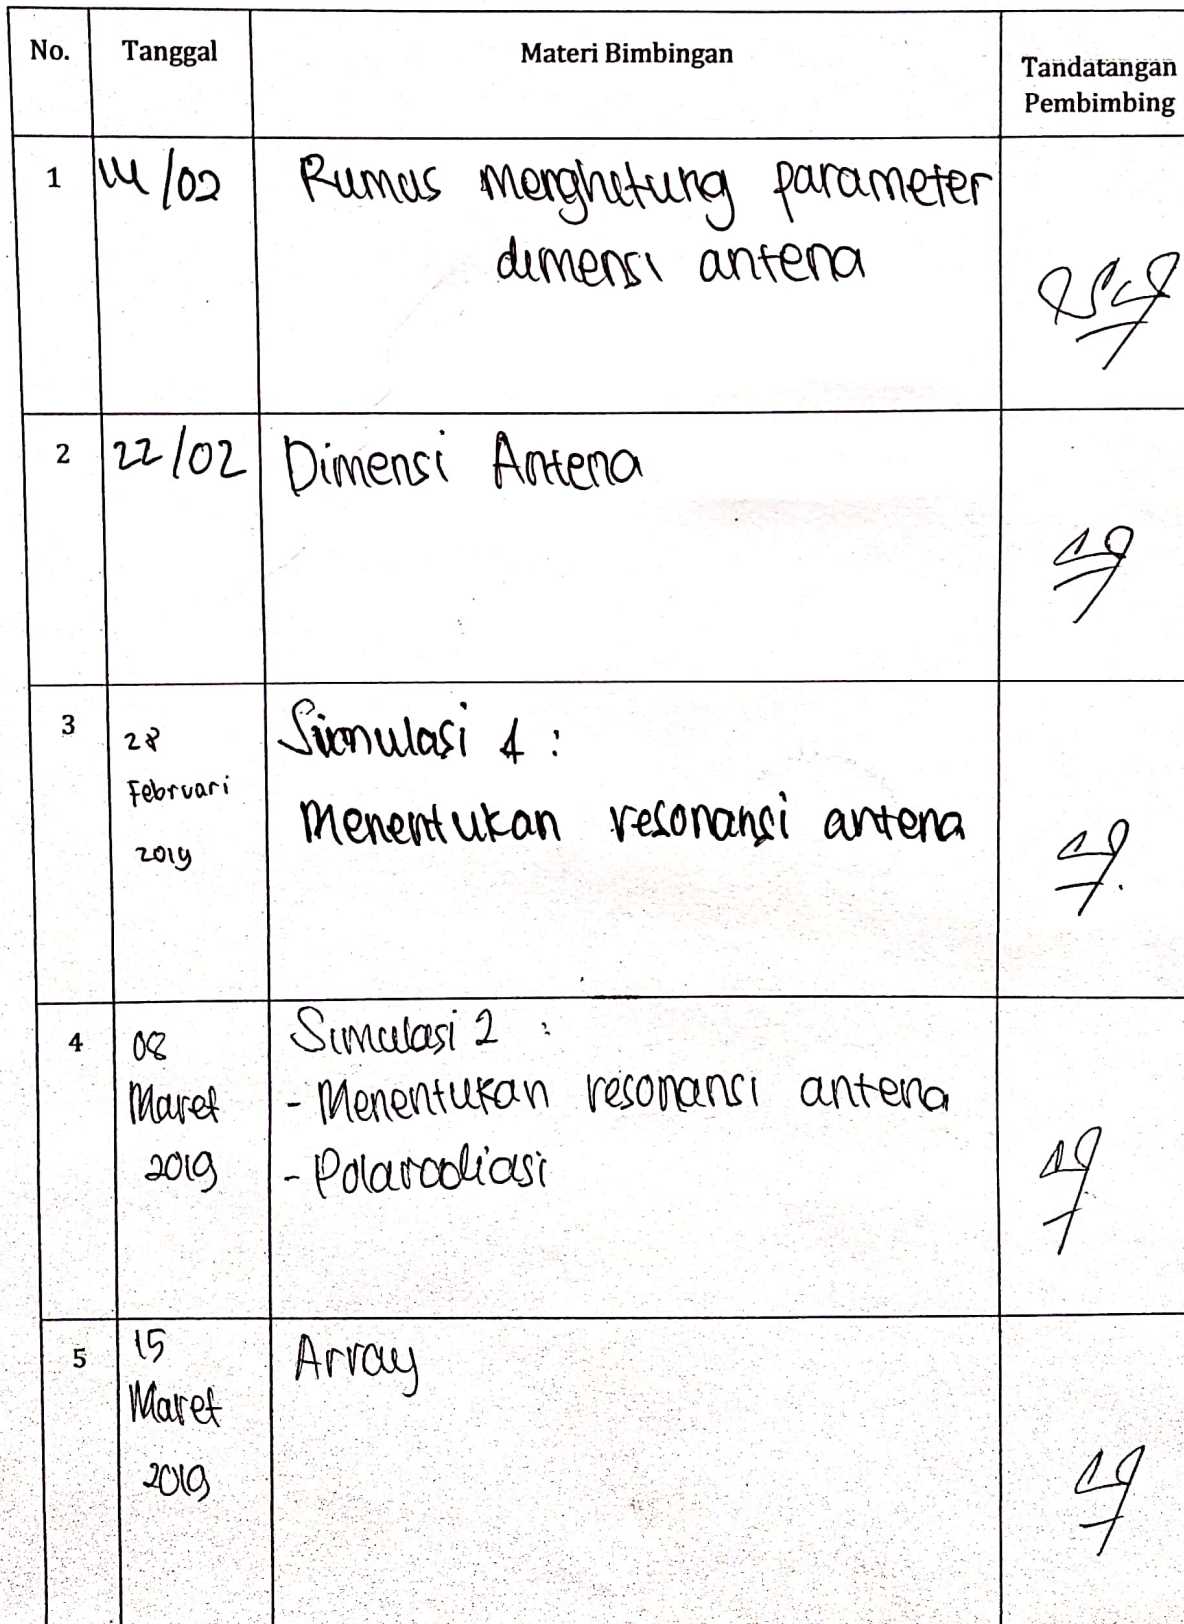 No. Tanggal Materi Bimbingan Tandatangan
Pembimbing
1 14/02 Rumus menghitung parameter
dimensi antena
2 22/02 Dimensi Antena
3 28
Februari
2019
Simulasi 1 :
Menentukan resonansi antena
4 08
Maret
2019
Simulasi 2 :
- Menentukan resonansi antena
- Polarodiasi
5 15
Maret
2019
Array